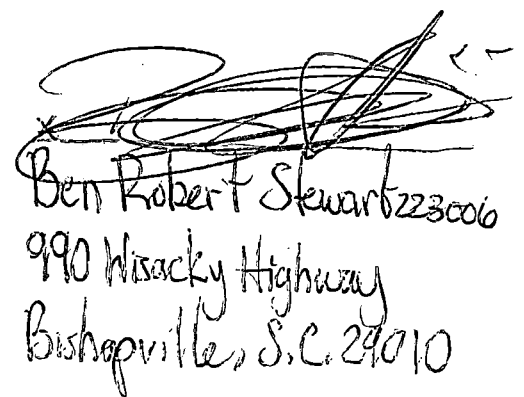 X
Ben Robert Stewart 223006
990 Wisacky Highway
Bishopville, S.C. 29010